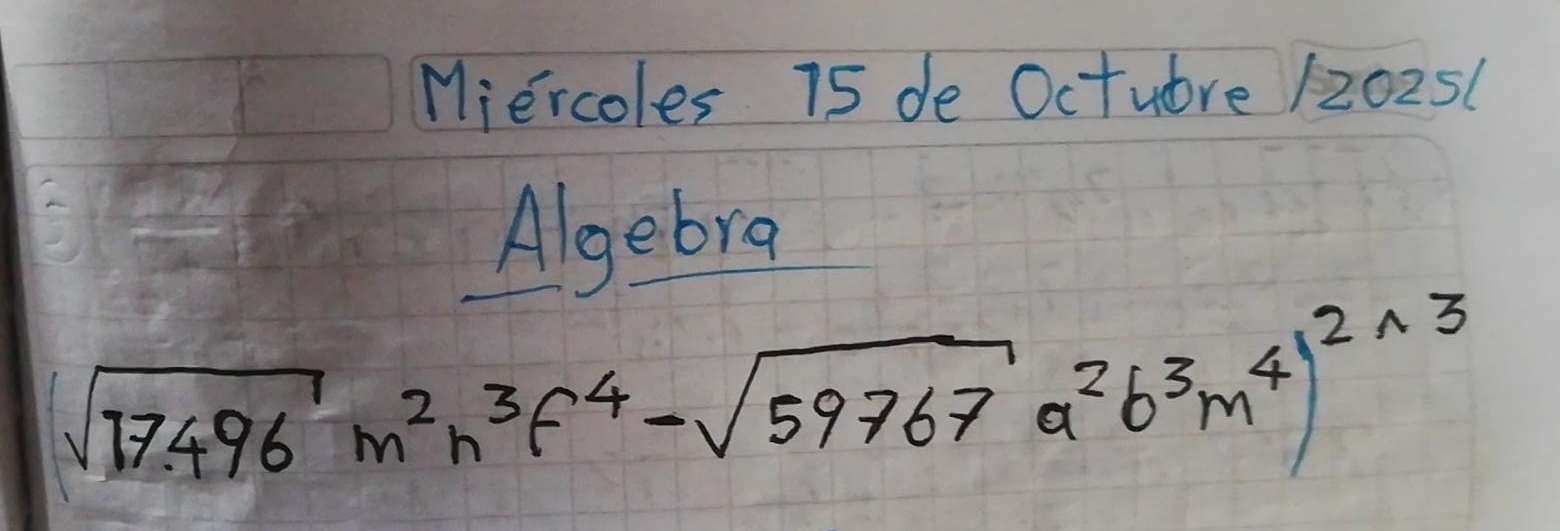 Miércoles 15 de Octubre /2025/
Algebra
(√17.496 m²n³f⁴ - √59767 a²b³m⁴)² ^ ³